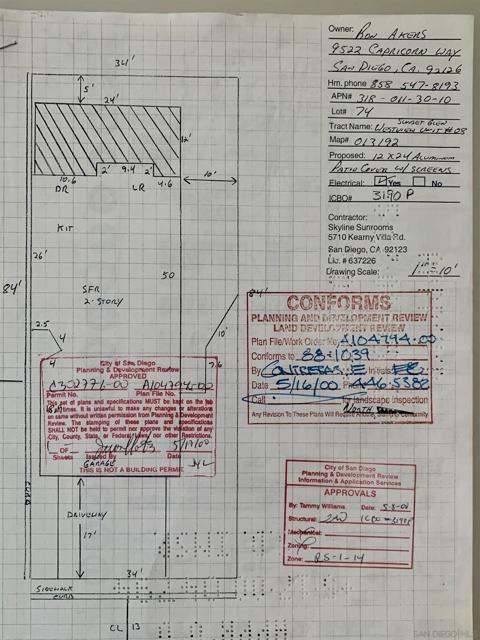 Owner: RON AKERS
9522 CAPRICORN WAY
SAN DIEGO, CA. 92126
Hm. phone 858 547-8193
APN# 318-011-30-10
Lot# 74
SUNSET GLEN
Tract Name: WESTVIEW UNIT #08
Map# 013192
Proposed: 12 X 24 ALUMINUM
PATIO COVER W/ SCREENS
Electrical: Yes No
ICBO# 3190 P
Contractor:
Skyline Sunrooms
5710 Kearny Villa Rd.
San Diego, CA. 92123
Lic. # 637226
Drawing Scale: 1"=10'
34'
5'
24'
12'
10.6
2'
9.4
2'
4.6
10'
DR
LR
KIT
26'
50
84'
84'
SFR
2-STORY
2.5
4
4
10'
7.6
CONFORMS
PLANNING AND DEVELOPMENT REVIEW
LAND DEVELOPMENT REVIEW
Plan File/Work Order No. A104794-00
Conforms to 88-1039
By CONTRERAS E Initials
Date 5/16/00 Ph 446.5382
Call for landscape inspection
NORTH
Any Revision To These Plans Will Require Another Stamp of Conformity
City of San Diego
Planning & Development Review
APPROVED
C302771-00 A104794-00
Permit No. Plan File No.
This set of plans and specifications MUST be kept on the
job at all times. It is unlawful to make any changes or alterations
on same without written permission from Planning & Development
Review. The stamping of these plans and specifications
SHALL NOT be held to permit nor approve the violation of any
City, County, State, or Federal law nor other restrictions.
OF
5/17/00
Sheets Issued By Date
GARAGE
THIS IS NOT A BUILDING PERMIT
DRIVEWAY
17'
34'
SIDEWALK
CURB
CL 13
City of San Diego
Planning & Development Review
Information & Application Services
APPROVALS
By: Tammy Williams Date: 5-8-00
Structural: ICBO #3190P
Mechanical:
Zoning:
Zone: RS-1-14
SAN DIEGO MLS